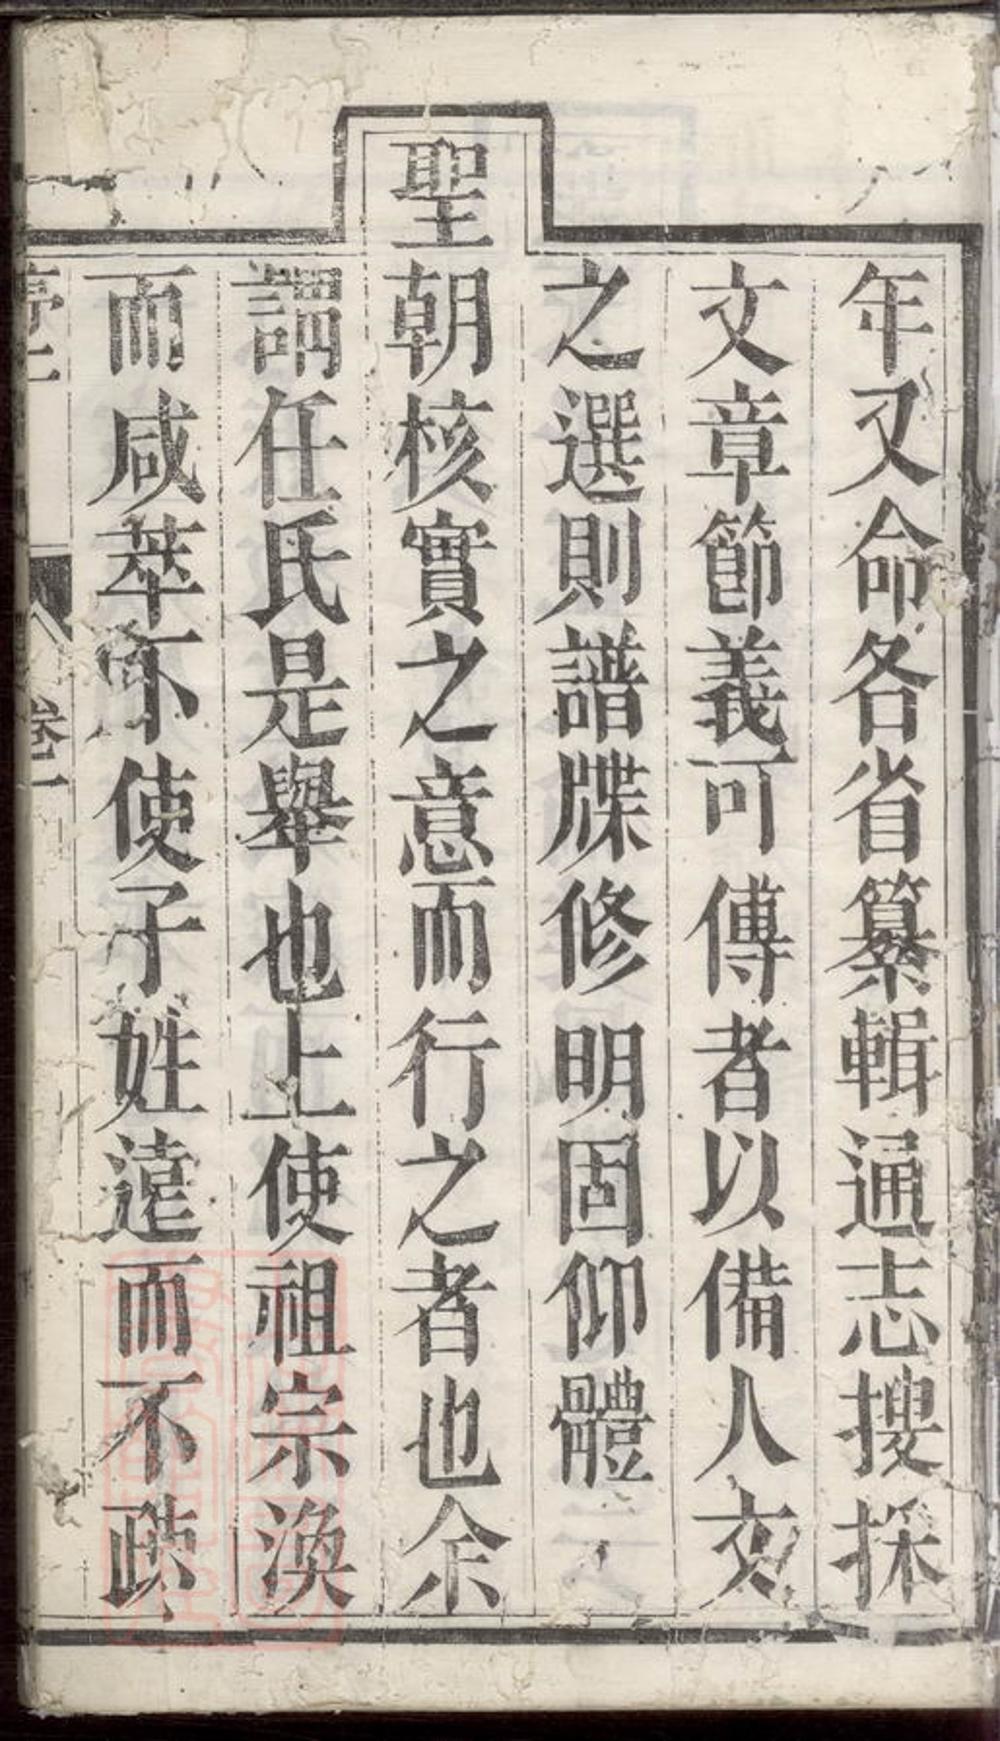 年又命各省纂輯通志搜採
文章節義可傳者以備人文
之選則譜牒修明固仰體
聖朝核實之意而行之者也余
謂任氏是舉也上使祖宗渙
而咸萃下使子姓遠而不疎
序一
卷一